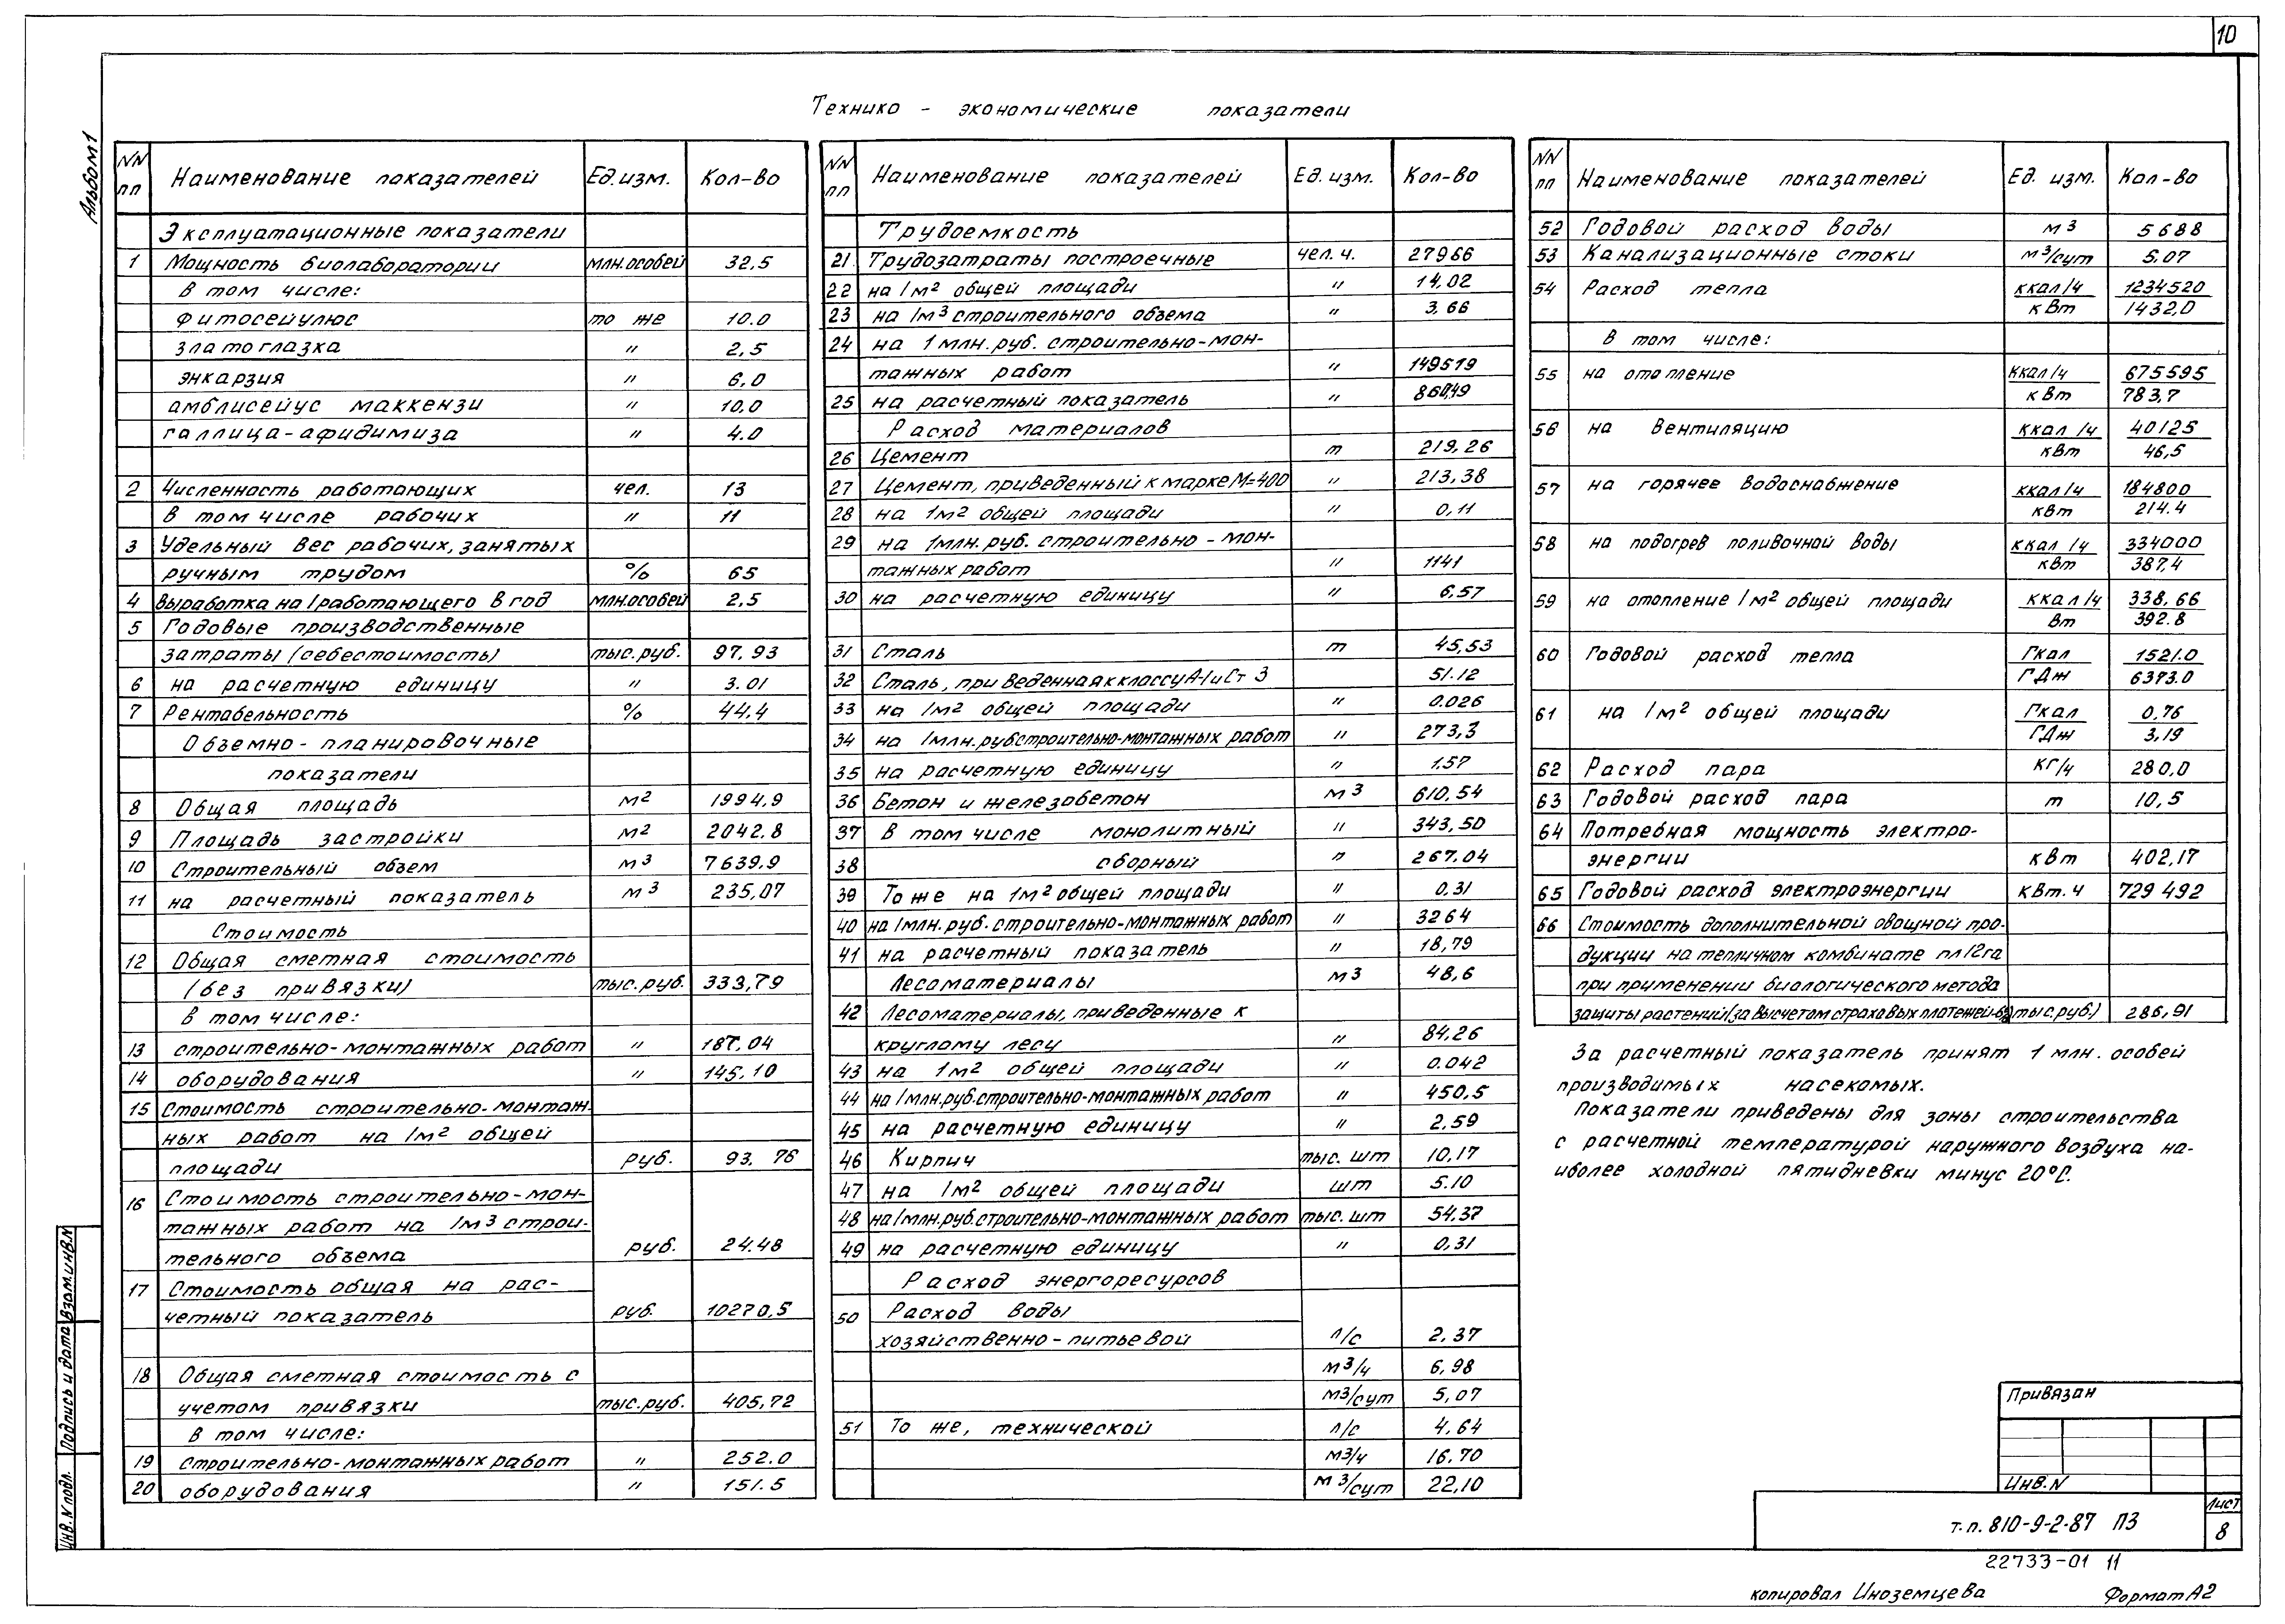 10
Альбом 1
Технико - экономические показатели
NN пп Наименование показателей Ед. изм. Кол-во
Эксплуатационные показатели
1 Мощность биолаборатории млн.особей 32,5
в том числе:
фитосейулюс то же 10.0
златоглазка " 2,5
энкарзия " 6,0
амблисейус маккензи " 10,0
галлица-афидимиза " 4.0
2 Численность работающих чел. 13
в том числе рабочих " 11
3 Удельный вес рабочих, занятых
ручным трудом % 65
4 выработка на 1работающего в год млн.особей 2,5
5 Годовые производственные
затраты (себестоимость) тыс.руб. 97,93
6 на расчетную единицу " 3.01
7 Рентабельность % 44,4
Объемно-планировочные
показатели
8 Общая площадь м2 1994,9
9 Площадь застройки м2 2042.8
10 Строительный объем м3 7639.9
11 на расчетный показатель м3 235,07
Стоимость
12 Общая сметная стоимость
(без привязки) тыс.руб. 333,79
в том числе:
13 строительно-монтажных работ " 187,04
14 оборудования " 145,10
15 Стоимость строительно-монтаж-
ных работ на 1м2 общей
площади руб. 93,76
16 Стоимость строительно-мон-
тажных работ на 1м3 строи-
тельного объема руб. 24.48
17 Стоимость общая на рас-
четный показатель руб. 10270,5
18 Общая сметная стоимость с
учетом привязки тыс.руб. 405,72
в том числе:
19 строительно-монтажных работ " 252.0
20 оборудования " 151.5
NN пп Наименование показателей Ед. изм. Кол-во
Трудоемкость
21 Трудозатраты построечные чел. ч. 27966
22 на 1м2 общей площади " 14,02
23 на 1м3 строительного объема " 3,66
24 на 1 млн. руб. строительно-мон-
тажных работ " 149519
25 на расчетный показатель "
Расход материалов
26 Цемент т 219,26
27 Цемент, приведенный к марке М=400 " 213,38
28 на 1м2 общей площади " 0,11
29 на 1млн.руб. строительно-мон-
тажных работ " 1141
30 на расчетную единицу " 6,57
31 Сталь т 45,53
32 Сталь, приведенная к классу А-1 и Ст 3 51.12
33 на 1м2 общей площади " 0.026
34 на 1млн.руб строительно-монтажных работ " 273,3
35 на расчетную единицу " 1.57
36 Бетон и железобетон м3 610,54
37 в том числе монолитный " 343,50
38 сборный " 267.04
39 То же на 1м2 общей площади " 0.31
40 на 1млн.руб. строительно-монтажных работ " 3264
41 на расчетный показатель " 18,79
Лесоматериалы м3 48,6
42 Лесоматериалы, приведенные к
круглому лесу " 84,26
43 на 1м2 общей площади " 0.042
44 на 1млн.руб.строительно-монтажных работ " 450,5
45 на расчетную единицу " 2.59
46 Кирпич тыс. шт 10,17
47 на 1м2 общей площади шт 5.10
48 на 1млн.руб.строительно-монтажных работ тыс. шт 54.37
49 на расчетную единицу " 0,31
Расход энергоресурсов
50 Расход воды
хозяйственно-питьевой л/с 2,37
м3/ч 6,98
м3/сут 5,07
51 То же, технической л/с 4,64
м3/ч 16.70
м3/сут 22,10
NN пп Наименование показателей Ед. изм. Кол-во
52 Годовой расход воды м3 5688
53 Канализационные стоки м3/сут 5.07
54 Расход тепла ккал/ч 1234520
кВт 1432,0
в том числе:
55 на отопление ккал/ч 675595
кВт 783,7
56 на вентиляцию ккал/ч 40125
кВт 46,5
57 на горячее водоснабжение ккал/ч 184800
кВт 214.4
58 на подогрев поливочной воды ккал/ч 334000
кВт 387,4
59 на отопление 1м2 общей площади ккал/ч 338,66
Вт 392.8
60 Годовой расход тепла Гкал 1521.0
ГДж 6373.0
61 на 1м2 общей площади Гкал 0,76
ГДж 3,19
62 Расход пара кг/ч 280,0
63 Годовой расход пара т 10,5
64 Потребная мощность электро-
энергии кВт 402,17
65 Годовой расход электроэнергии кВт.ч 729 492
66 Стоимость дополнительной овощной про-
дукции на тепличном комбинате пл 12га
при применении биологического метода
защиты растений (за вычетом страховых платежей- тыс.руб.) 286,91
За расчетный показатель принят 1 млн. особей
производимых насекомых.
Показатели приведены для зоны строительства
с расчетной температурой наружного воздуха на-
иболее холодной пятидневки минус 20°С.
Привязан
Инв. N
т.п. 810-9-2-87 ПЗ
Лист
8
22733-01 11
копировал Иноземцева Формат А2
Инв. N подл. Подпись и дата Взам.инв.N